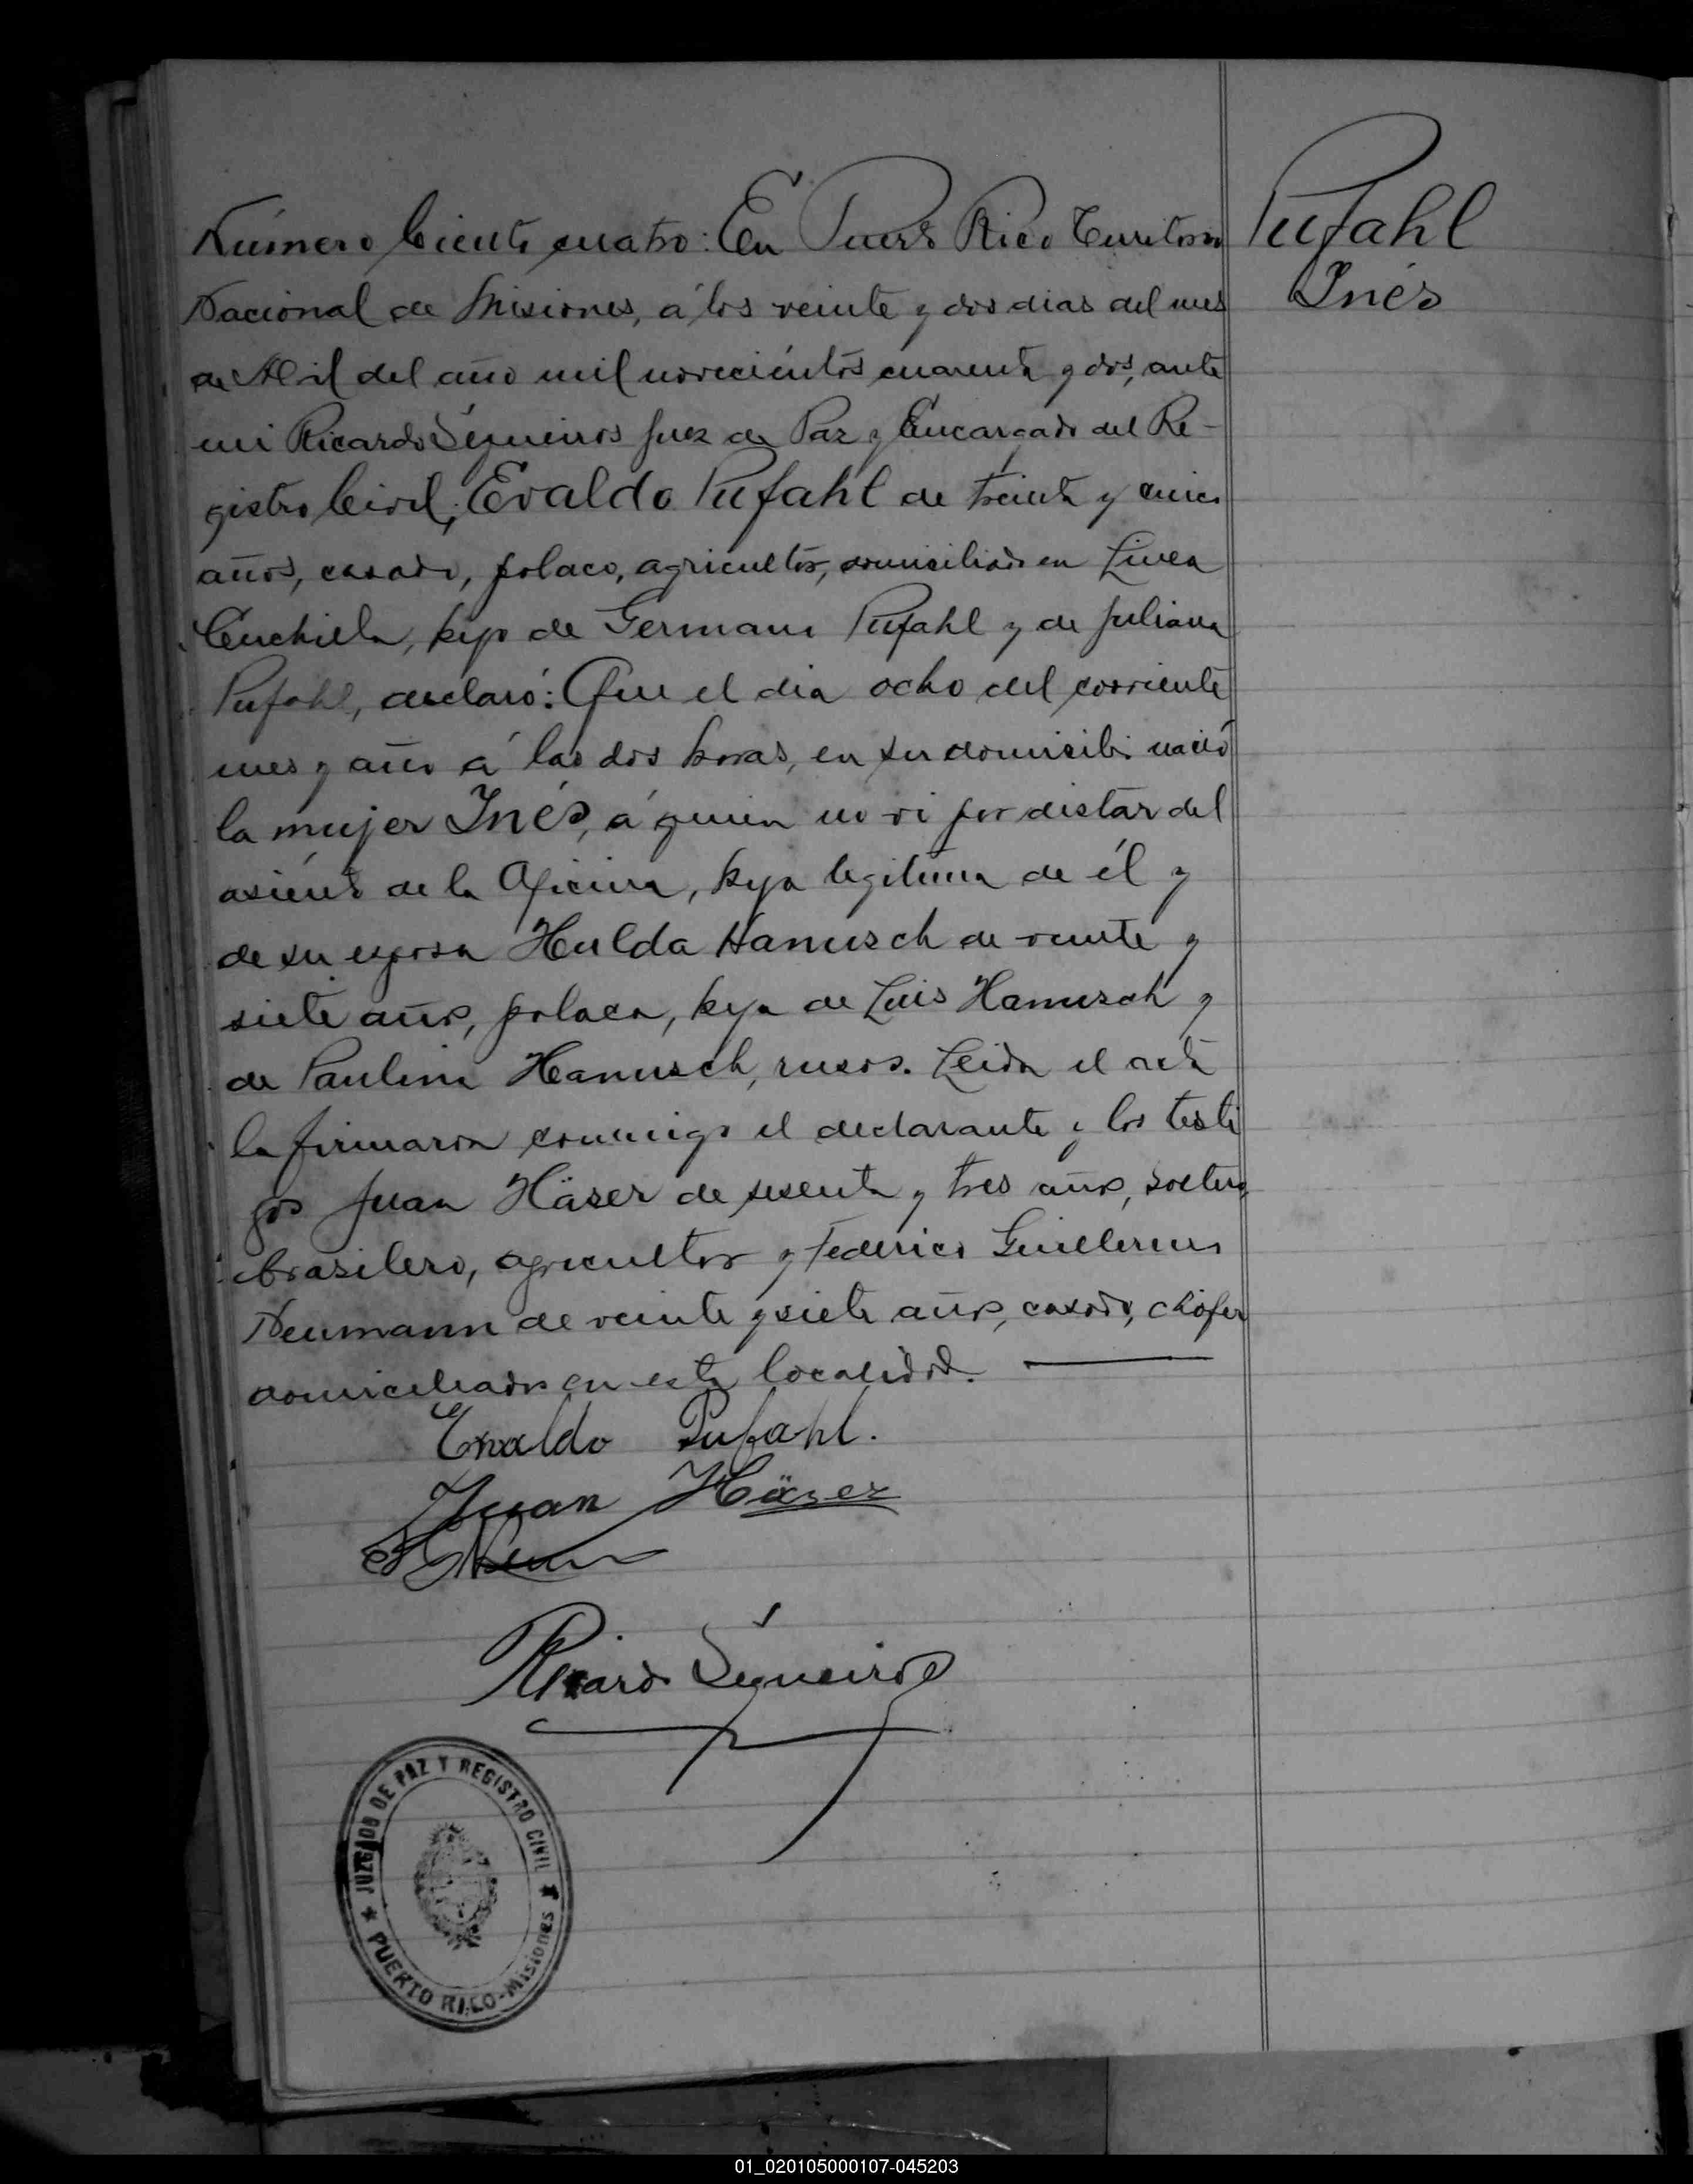 Número Ciento cuatro: En Puerto Rico Territorio
Nacional de Misiones, á los veinte y dos dias del mes
de Abril del año mil novecientos cuarenta y dos, ante
mi Ricardo Sequeiros Juez de Paz y Encargado del Re-
gistro Civil, Evaldo Pufahl de treinta y cinco
años, casado, polaco, agricultor, domiciliado en Linea
Cuchilla, hijo de Germano Pufahl y de Juliana
Pufahl, declaró: Que el dia ocho del corriente
mes y año á las dos horas, en su domicilio nació
la mujer Inés, á quien no vi por distar del
asiento de la Oficina, hija legitima de él y
de su esposa Hulda Hanusch de veinte y
siete años, polaca, hija de Luis Hanusch y
de Paulina Hanusch, rusos. Leida el acta
la firmaron conmigo el declarante y los testi
gos Juan Häser de sesenta y tres años, soltero,
brasilero, agricultor y Federico Guillermo
Neumann de veinte y siete años, casado, chófer
domiciliados en esta localidad.
Evaldo Pufahl.
Juan Häser
Ricardo Sequeiros
Pufahl
Inés
JUZGADO DE PAZ Y REGISTRO CIVIL
PUERTO RICO - Misiones
01_020105000107-045203